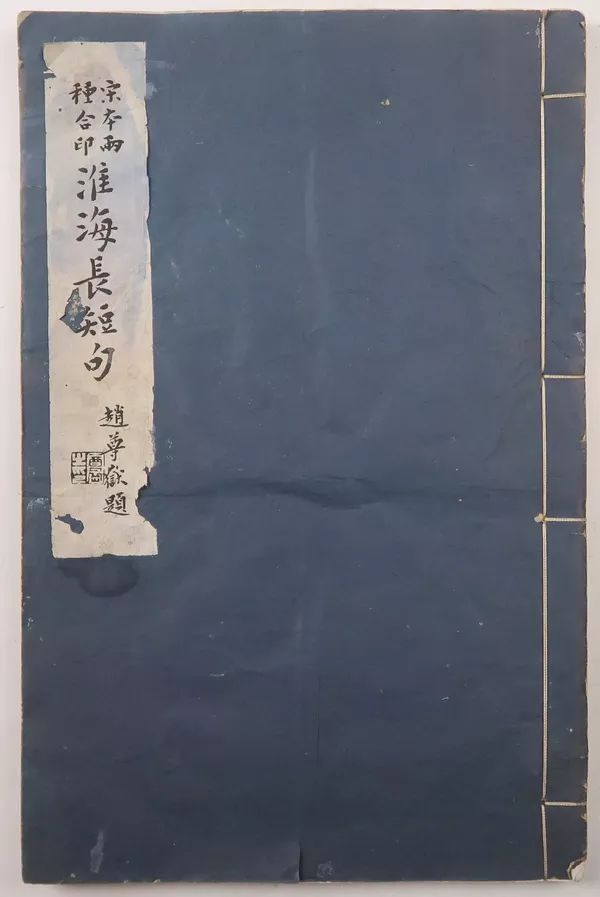 宋本兩
種合印
淮海長短句
趙尊嶽題